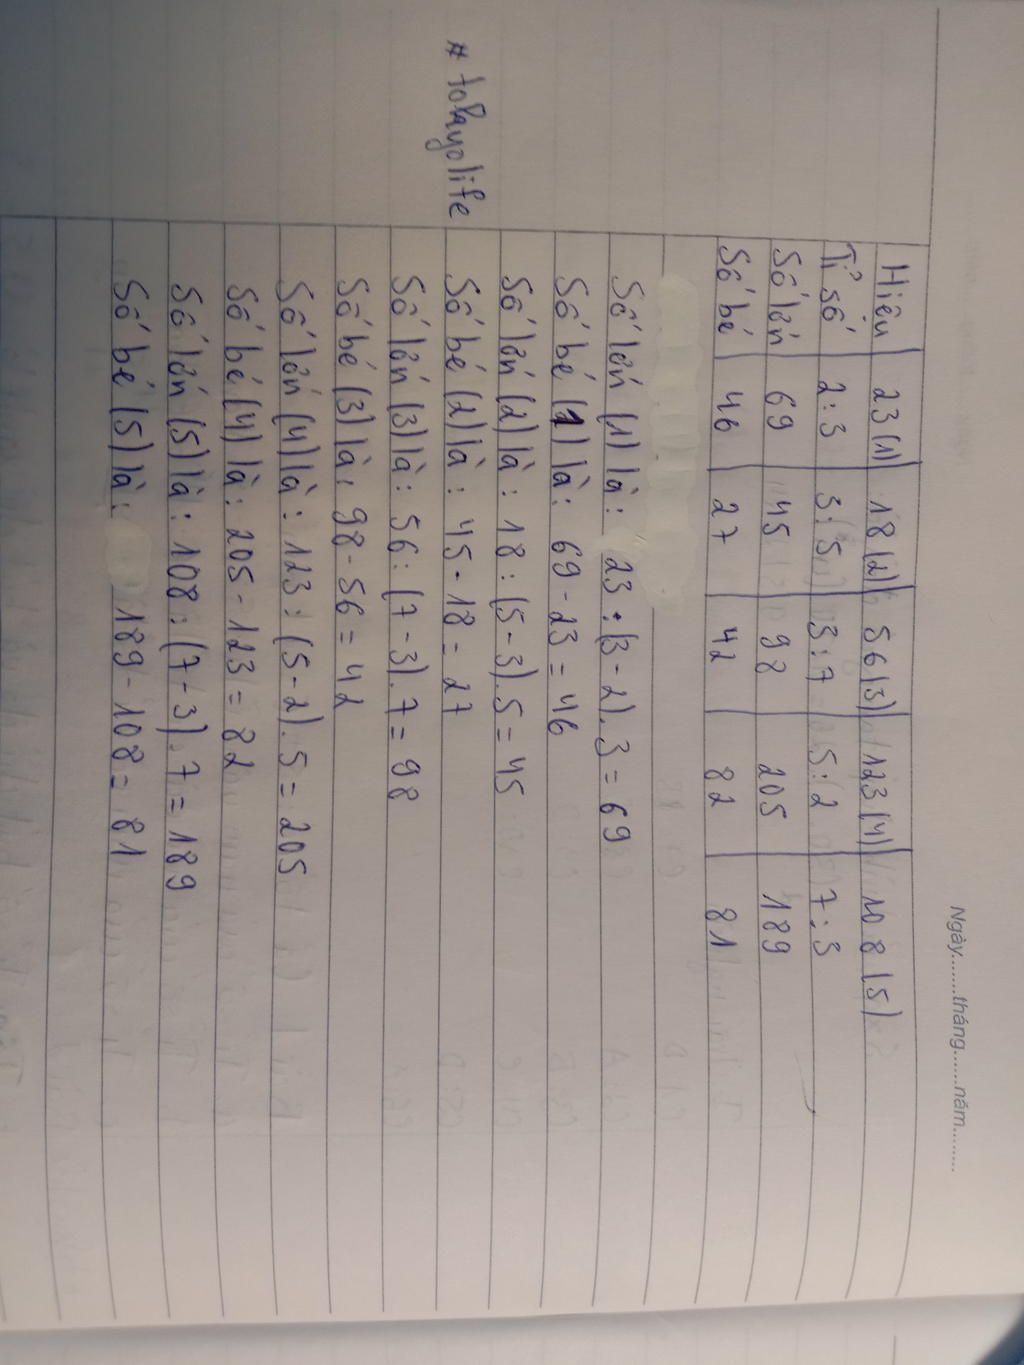 Ngày.......tháng.......năm........
Hiệu 23 (1) 18 (2) 56 (3) 123 (4) 108 (5)
Tỉ số 2:3 3:5 3:7 5:2 7:3
Số lớn 69 45 98 205 189
Số bé 46 27 42 82 81
Số lớn (1) là: 23 : (3 - 2) . 3 = 69
Số bé (1) là: 69 - 23 = 46
Số lớn (2) là: 18 : (5 - 3) . 5 = 45
Số bé (2) là: 45 - 18 = 27
Số lớn (3) là: 56 : (7 - 3) . 7 = 98
Số bé (3) là: 98 - 56 = 42
Số lớn (4) là: 123 : (5 - 2) . 5 = 205
Số bé (4) là: 205 - 123 = 82
Số lớn (5) là: 108 : (7 - 3) . 7 = 189
Số bé (5) là: 189 - 108 = 81